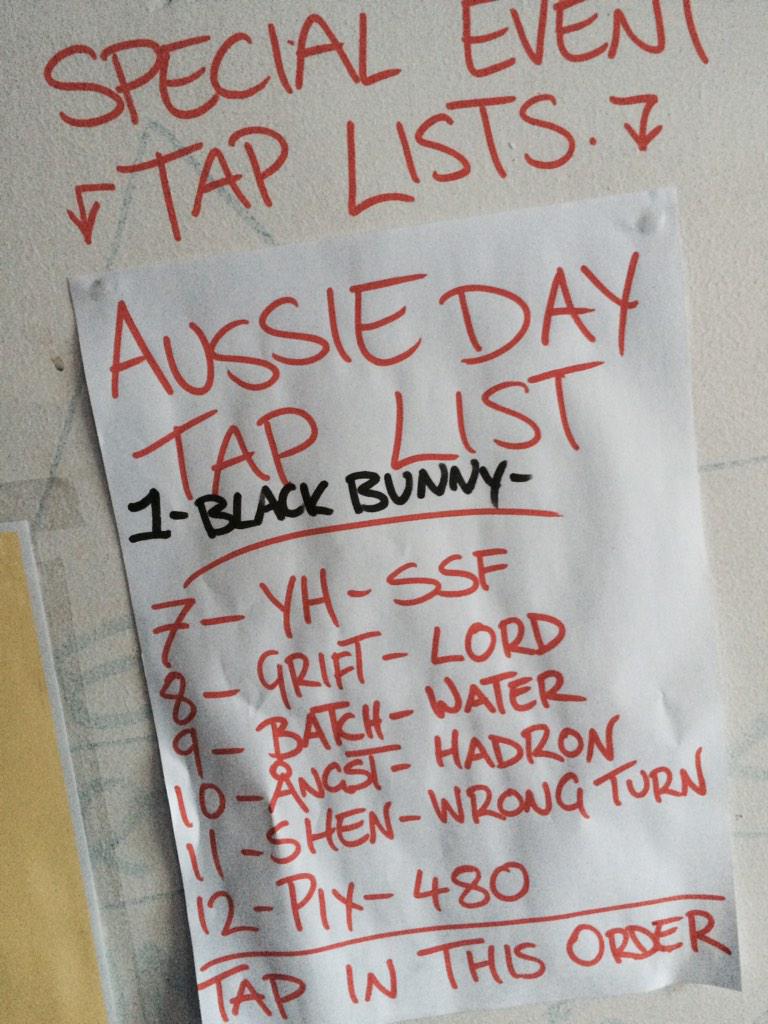 SPECIAL EVENT
TAP LISTS.
AUSSIE DAY
TAP LIST
1-BLACK BUNNY-
7- YH- SSF
8- GRIFT- LORD
9- BATCH- WATER
10-ÅNGST- HADRON
11-SHEN-WRONG TURN
12-PIX-480
TAP IN THIS ORDER